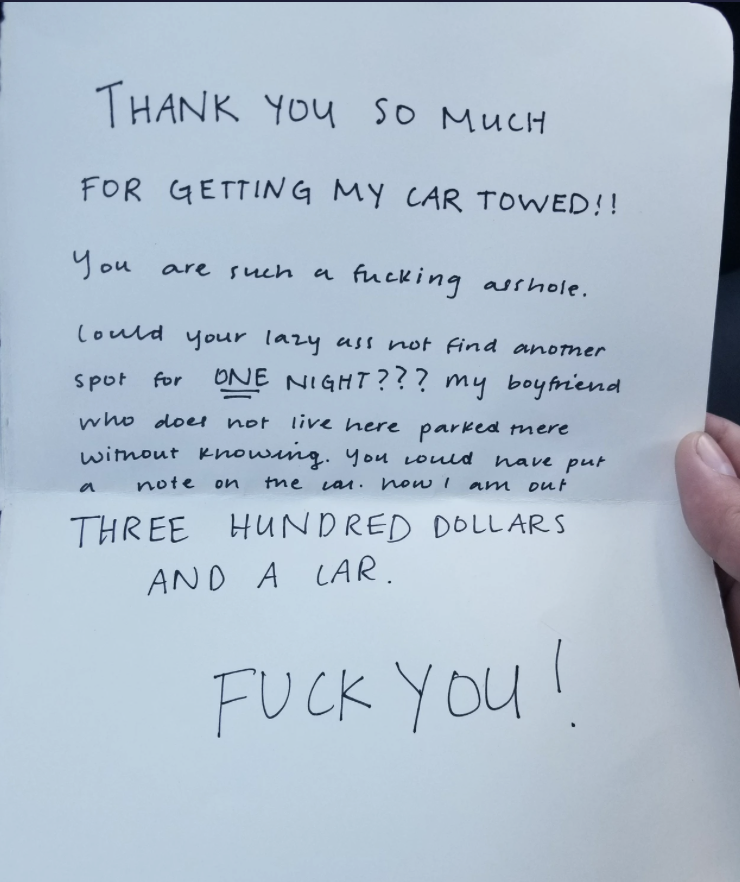 THANK YOU SO MUCH
FOR GETTING MY CAR TOWED!!
You are such a fucking asshole.
Could your lazy ass not find another
spot for ONE NIGHT??? my boyfriend
who does not live here parked there
without knowing. You could have put
a note on the car. now I am out
THREE HUNDRED DOLLARS
AND A CAR.
FUCK YOU!